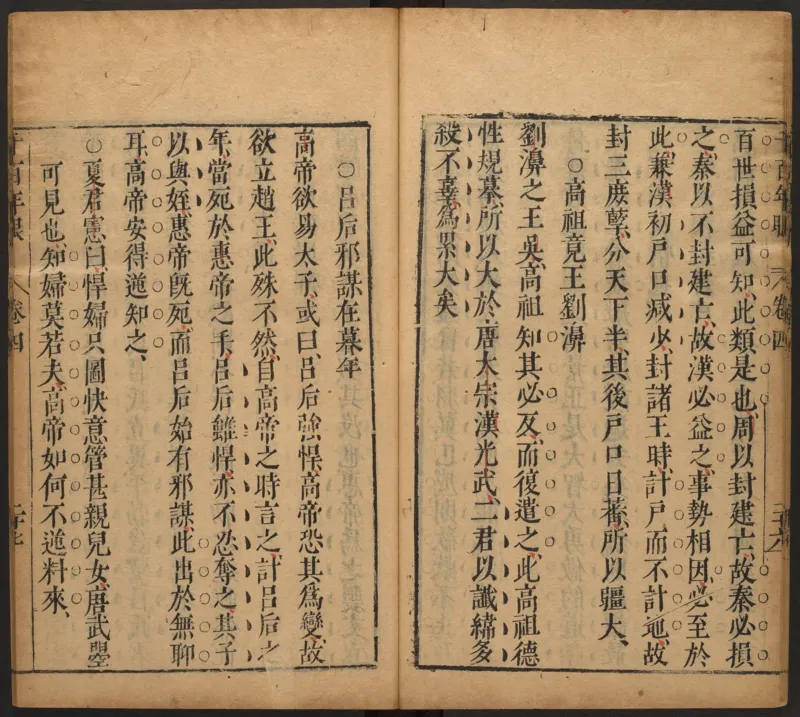 百世損益可知此類是也周以封建亡故秦必損
之秦以不封建亡故漢必益之事勢相因必至於
此兼漢初戸口減少封諸王時計戸而不計地故
封三庶孽分天下半其後戸口日蕃所以疆大
○高祖竟王劉濞
劉濞之王吳高祖知其必反而復遣之此高祖德
性規摹所以大於唐太宗漢光武二君以讖緯多
殺不辜為累大矣
卷四
二十六
○吕后邪謀在暮年
高帝欲易太子或曰吕后強悍高帝恐其爲變故
欲立趙王此殊不然自高帝之時言之計吕后之
年當死於惠帝之手吕后雖悍亦不忍奪之其子
以與姪惠帝旣死而吕后始有邪謀此出於無聊
耳高帝安得逆知之
○夏君憲曰悍婦只圖快意管甚親兒女唐武曌
可見也知婦莫若夫高帝如何不逆料來
卷四
二十七